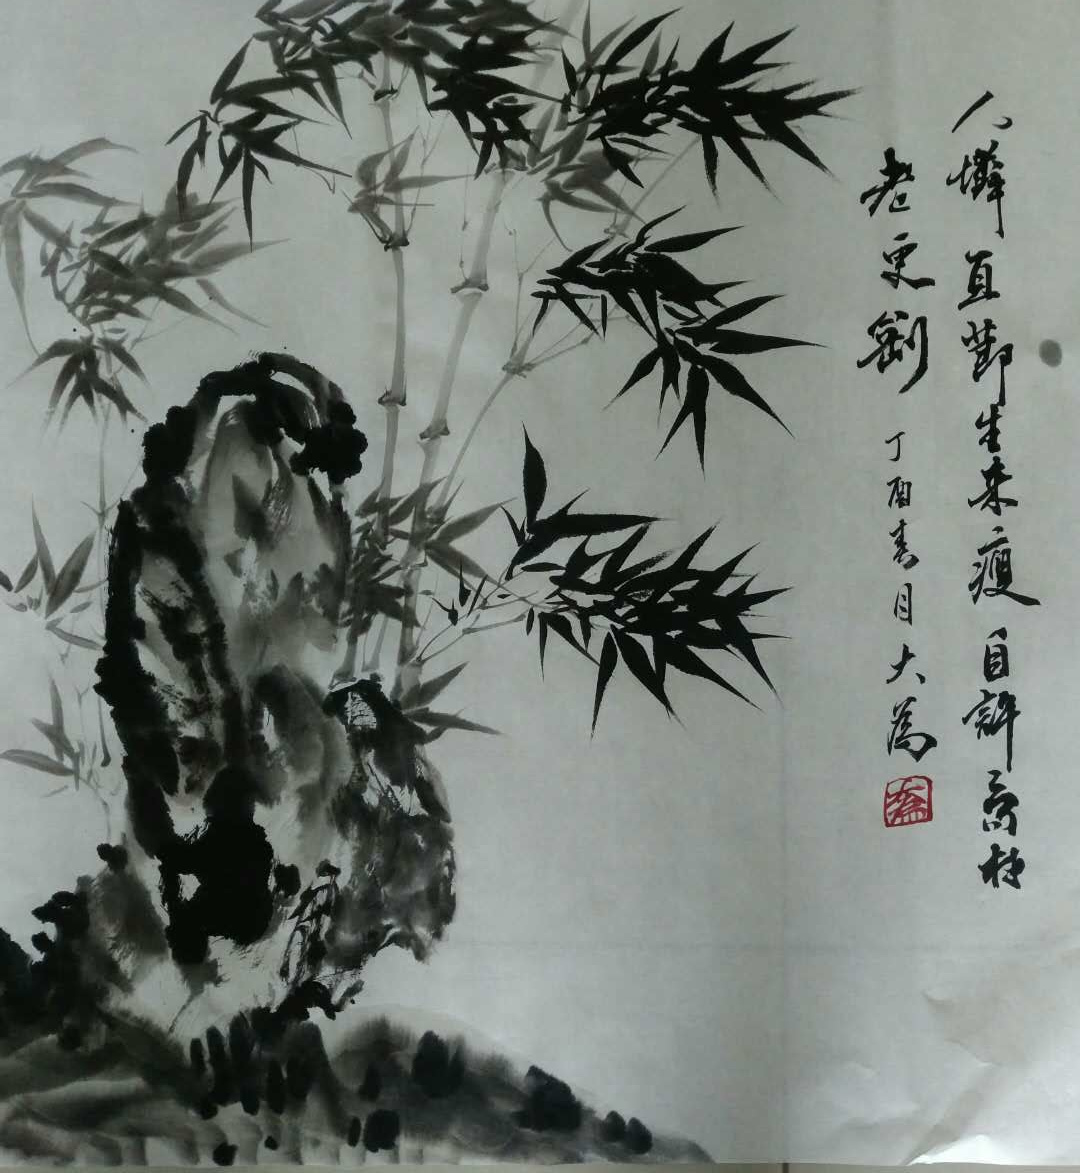 人憐直節生来瘦自許高材
老更剛 丁酉春月大為
大為